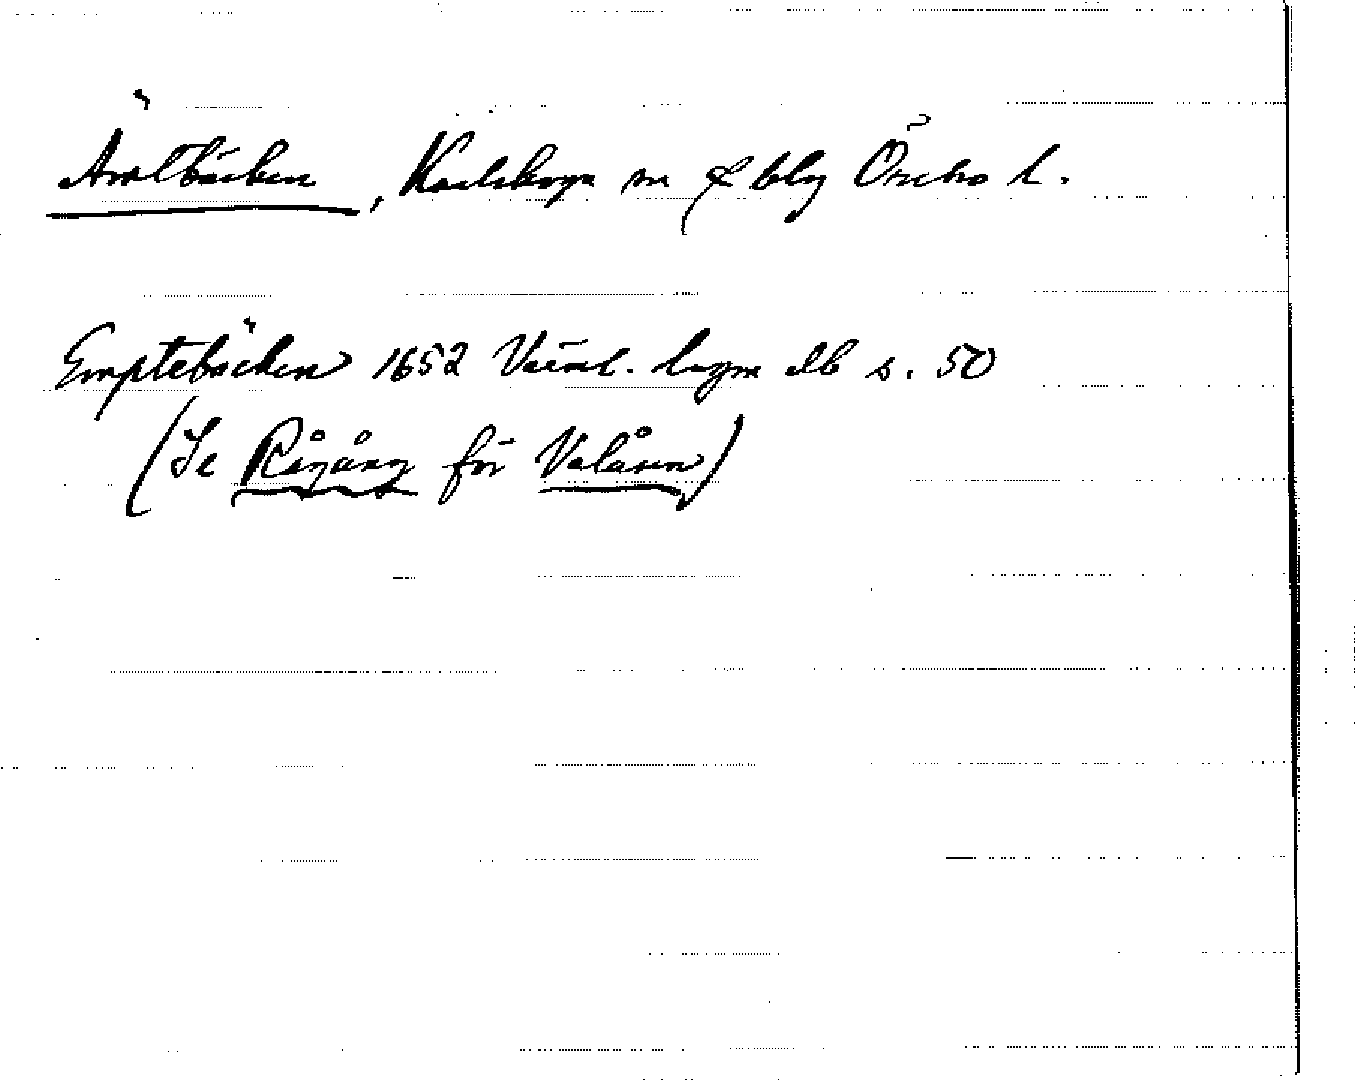 Ämtbäcken, Karlskoga sn & blg Örebro l.
Emptebäcken 1652 Värml. lagm dlb s. 50
(Se Rågång för Valåsen)